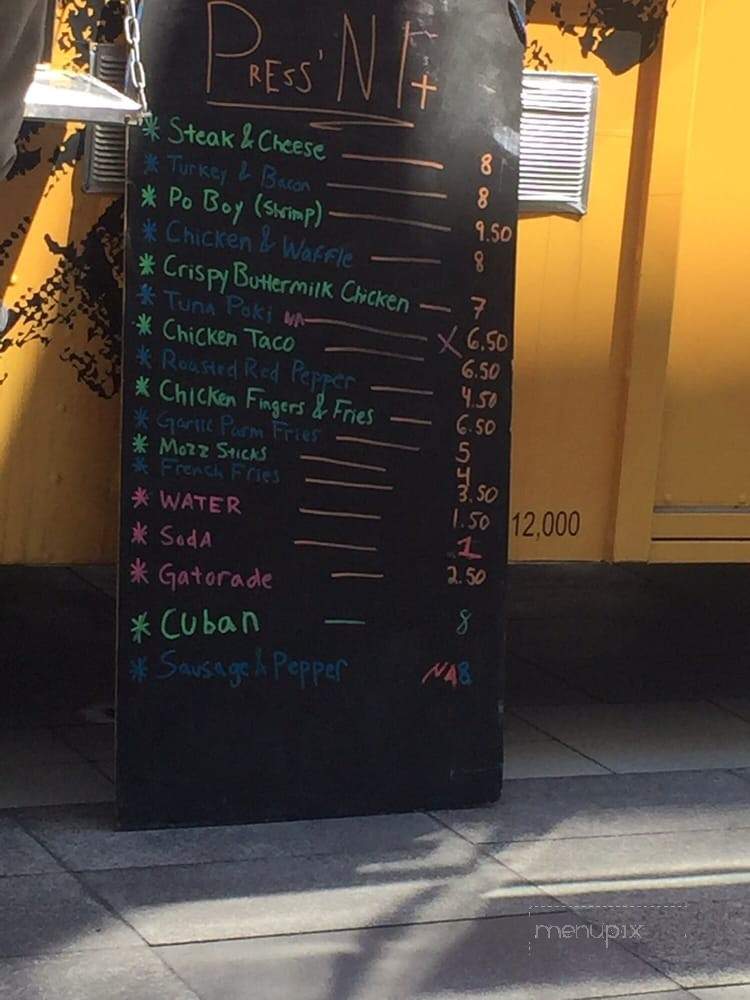 PRESS' N It
* Steak & Cheese 8
* Turkey & Bacon 8
* Po Boy (Shrimp) 9.50
* Chicken & Waffle 8
* Crispy Buttermilk Chicken 7
* Tuna Poki NA X 6.50
* Chicken Taco 6.50
* Roasted Red Pepper 4.50
* Chicken Fingers & Fries 6.50
* Garlic Parm Fries 5
* Mozz Sticks 4
* French Fries 3.50
* WATER 1.50
* Soda 1
* Gatorade 2.50
* Cuban 8
* Sausage & Pepper NA 8
12,000
menupix